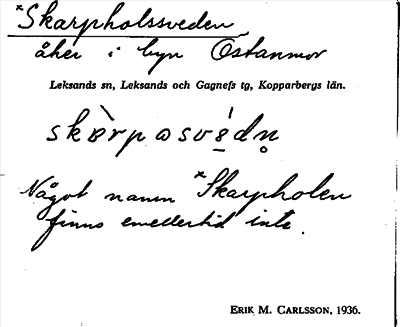 *Skarpholssveden
åker i byn Östanmor
Leksands sn, Leksands och Gagnefs tg, Kopparbergs län.
skàrpɷsvédn̥
Något namn *Skarpholen
finns emellertid inte.
ERIK M. CARLSSON, 1936.